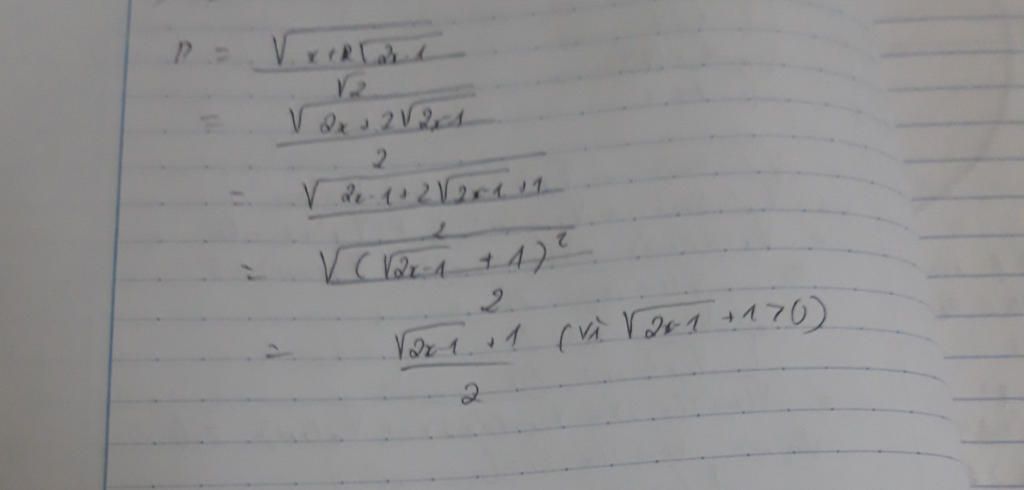 P = √(x+√(2x-1)) / √2
= √(2x+2√(2x-1)) / 2
= √(2x-1+2√(2x-1)+1) / 2
= √((√(2x-1)+1)²) / 2
= (√(2x-1)+1) / 2 (vì √(2x-1)+1>0)